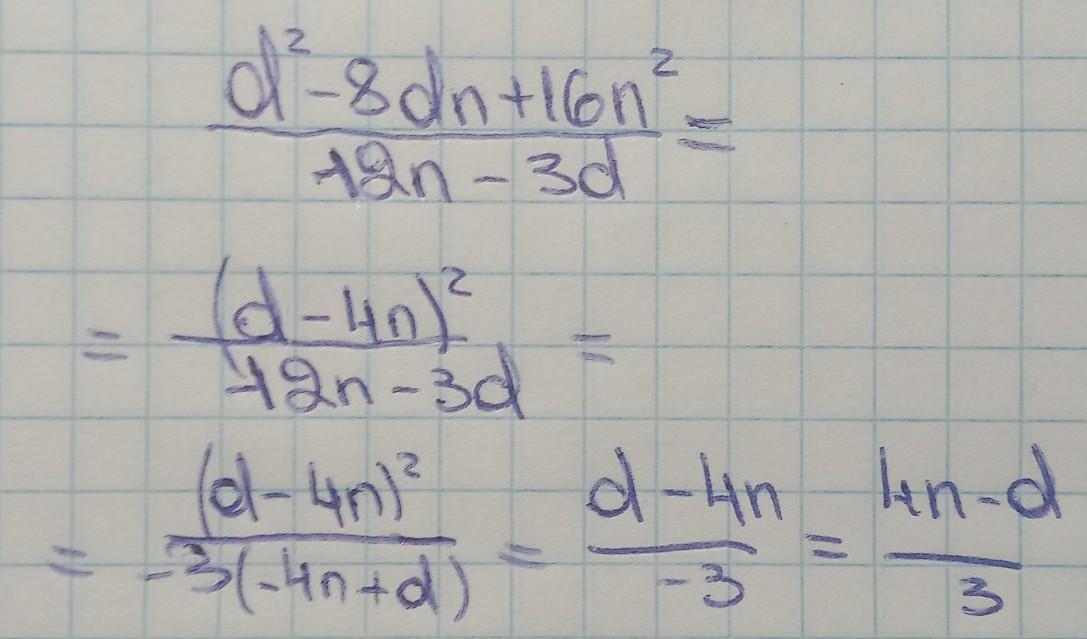 d² - 8dn + 16n² / 12n - 3d =
= (d - 4n)² / 12n - 3d =
= (d - 4n)² / -3(-4n + d) = d - 4n / -3 = 4n - d / 3